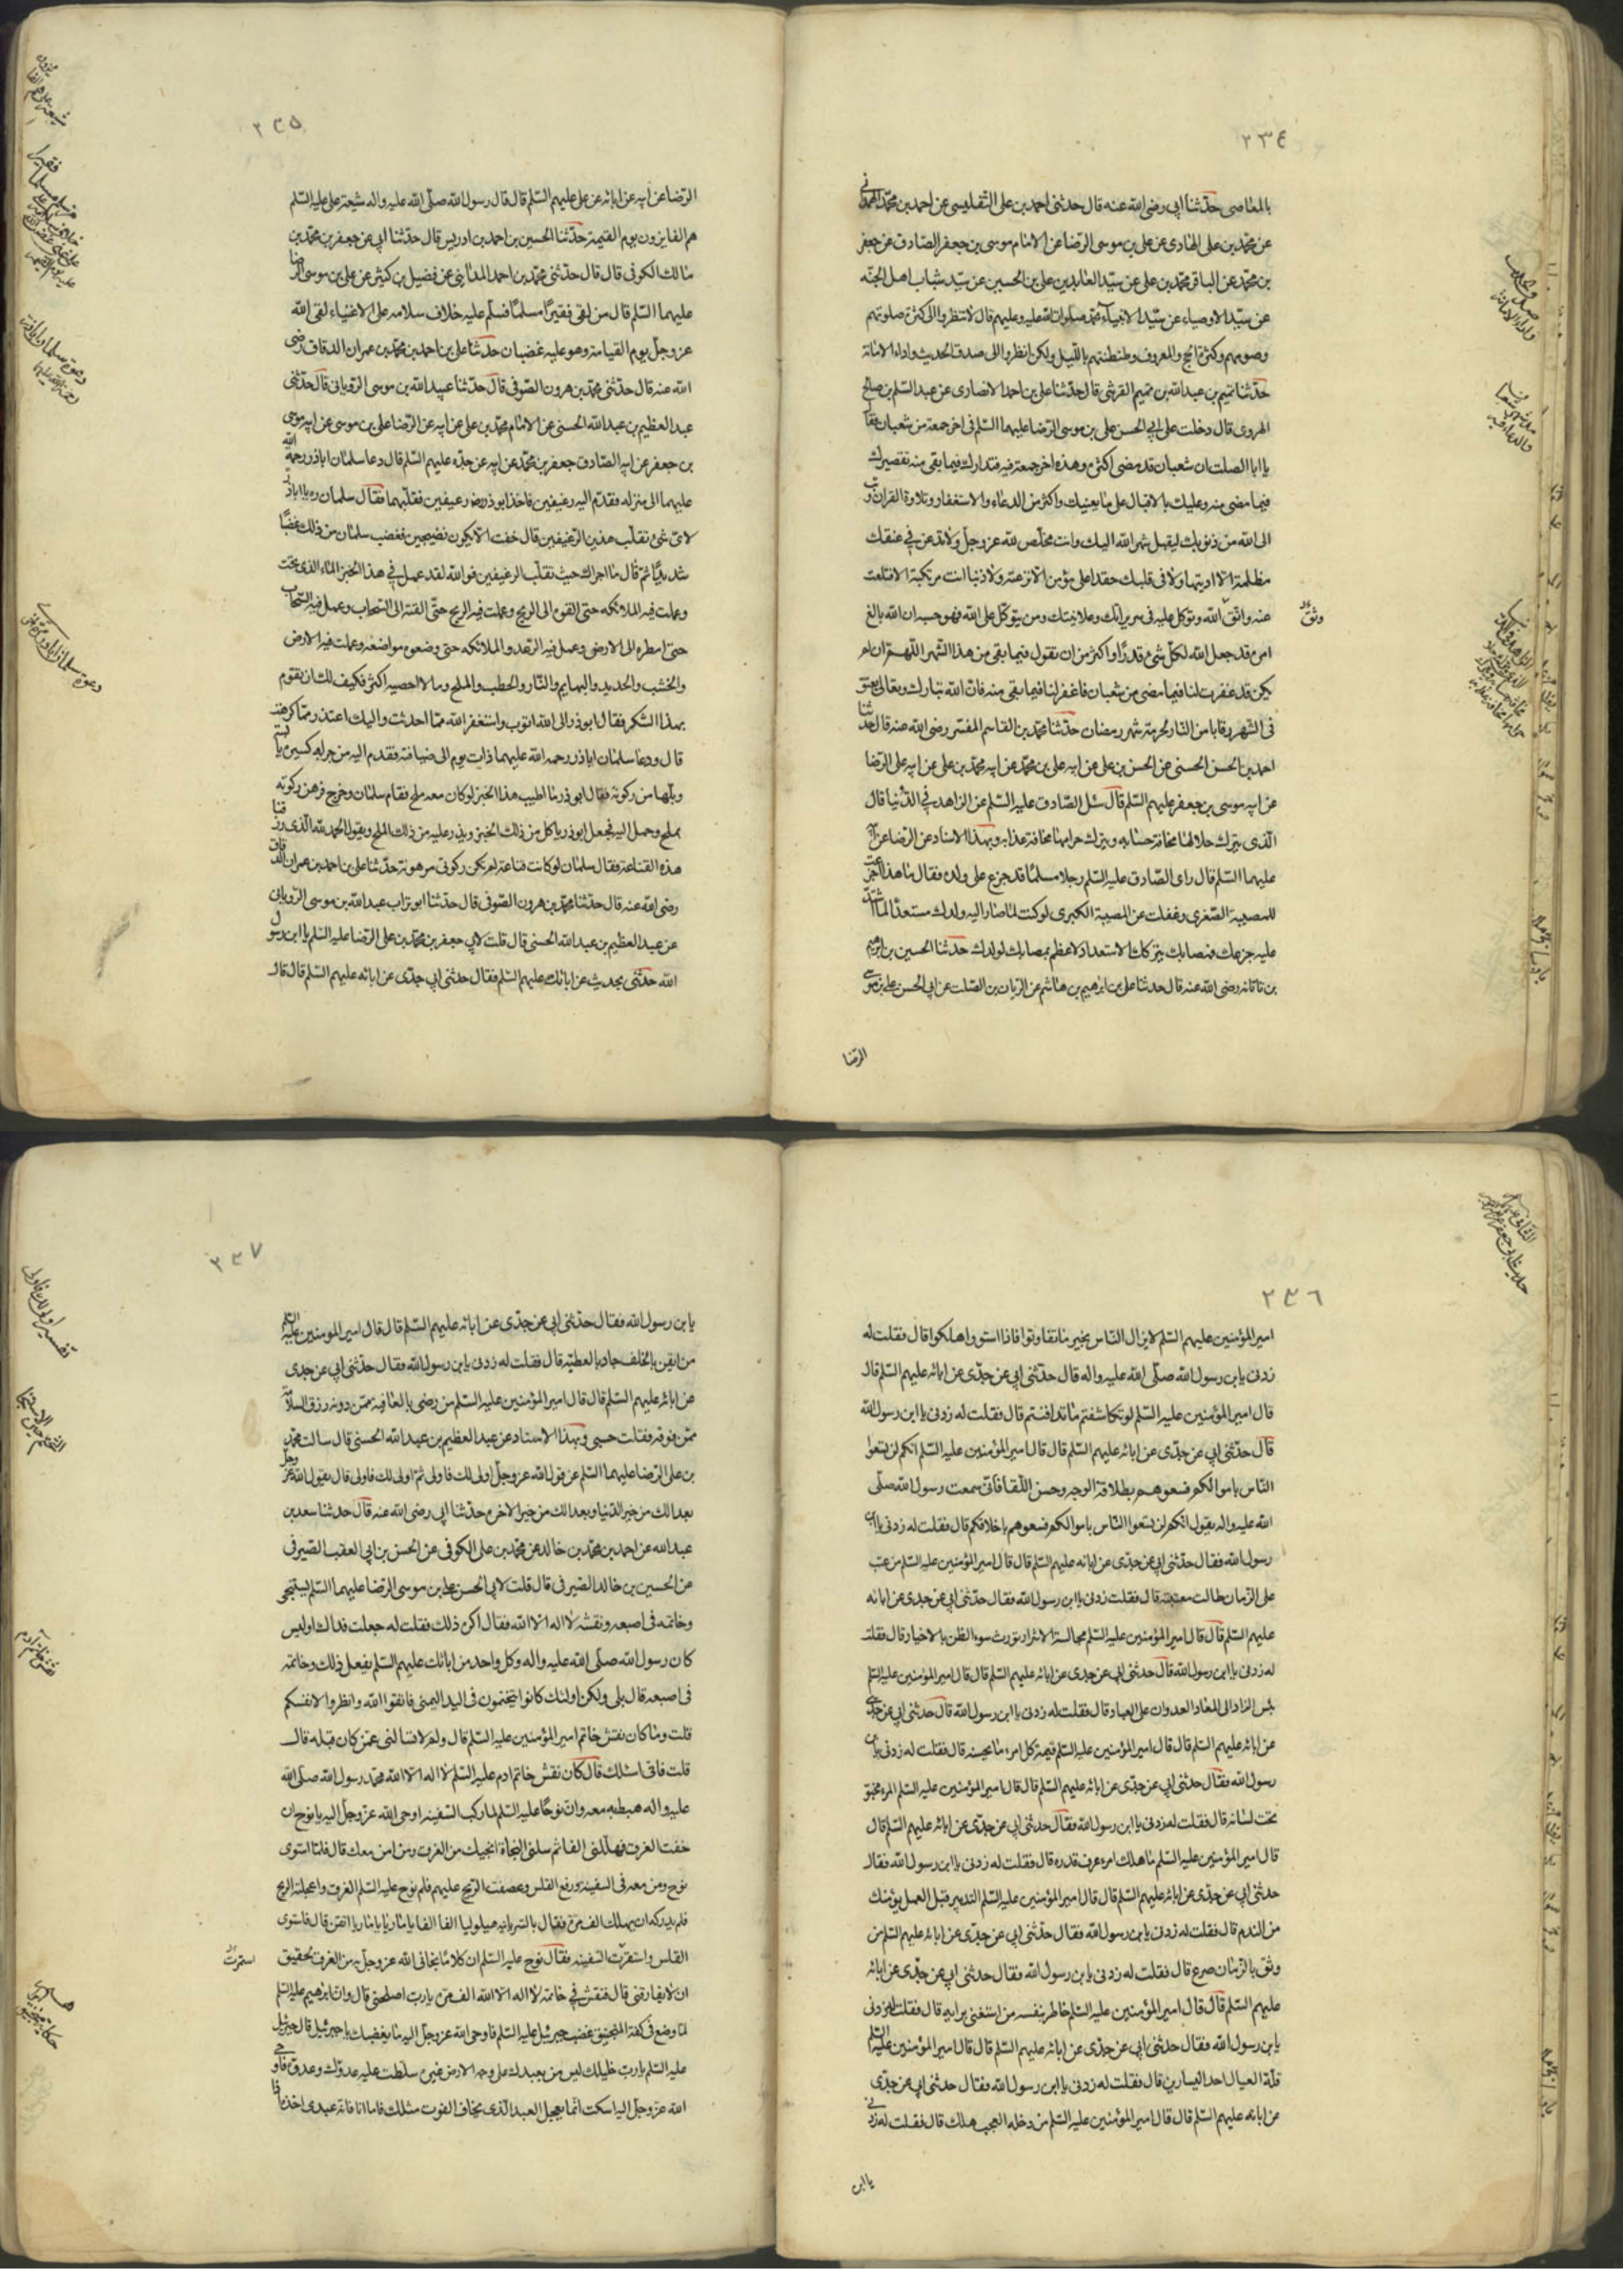 ٢٣٤
بالمعاصى حدثنا ابى رضى الله عنه قال حدثنى احمد بن على التفليسى عن احمد بن محمد الهمدانى
عن محمد بن على الهادى عن على بن موسى الرضا عن الامام موسى بن جعفر الصادق عن جعفر
بن محمد عن الباقر محمد بن على عن سيد العابدين على بن الحسين عن سيد شباب اهل الجنه
عن سيد الاوصياء عن سيد الانبياء محمد صلوات الله عليه وعليهم قال لا تنظروا الى كثرة صلوتهم
وصومهم وكثرة الحج والمعروف وطنطنتهم بالليل ولكن انظروا الى صدق الحديث واداء الامانة
حدثنا تميم بن عبد الله بن تميم القرشى قال حدثنا على بن احمد الانصارى عن عبد السلم بن صالح
الهروى قال دخلت على ابى الحسن على بن موسى الرضا عليهما السلم فى اخر جمعة من شعبان فقال
يا ابا الصلت ان شعبان قد مضى اكثره وهذه اخر جمعة فيه فتدارك فيما بقى منه تقصيرك
فيما مضى منه وعليك بالاقبال على ما يعنيك واكثر من الدعاء والاستغفار وتلاوة القران وتب
الى الله من ذنوبك ليقبل شهر الله اليك وانت مخلص لله عز وجل ولا تدعن فى عنقك
مظلمة الا اديتها ولا فى قلبك حقدا على مؤمن الا نزعته ولا ذنبا انت مرتكبه الا اقلعت
عنه واتق الله وتوكل عليه فى سرايرك وعلانيتك ومن يتوكل على الله فهو حسبه ان الله بالغ
امره قد جعل الله لكل شئ قدرا واكثر من ان تقول فيما بقى من هذا الشهر اللهم ان لم
يكن قد غفرت لنا فيما مضى من شعبان فاغفر لنا فيما بقى منه فان الله تبارك وتعالى يعتق
فى الشهر رقابا من النار لحرمة شهر رمضان حدثنا محمد بن القاسم المفسر رضى الله عنه قال حدثنا
احمد بن الحسن الحسنى عن الحسن بن على عن ابيه على بن محمد عن ابيه محمد بن على عن ابيه على الرضا
عن ابيه موسى بن جعفر عليهم السلم قال سئل الصادق عليه السلم عن الزاهد فى الدنيا قال
الذى يترك حلالها مخافة حسابه ويترك حرامها مخافة عذابه وبهذا الاسناد عن الرضا عن ابيه
عليهما السلم قال راى الصادق عليه السلم رجلا مسلما قد جزع على ولده فقال ما هذا اتجزع
للمصيبة الصغرى وغفلت عن المصيبة الكبرى لو كنت لما صار اليه ولدك مستعدا لما اشتد
عليه جزعك فمصابك بتركك الاستعداد لا عظم بمصابك لولدك حدثنا الحسين بن ابرهيم
بن تاتانه رضى الله عنه قال حدثنا على بن ابرهيم بن هاشم عن الريان بن الصلت عن ابى الحسن على بن موسى
الرضا
وثق
٢٣٥
الرضا عن ابيه عن ابائه عن على عليهم السلم قال قال رسول الله صلى الله عليه واله شيعة على عليه السلم
هم الفايزون يوم القيمة حدثنا الحسين بن احمد بن ادريس قال حدثنا ابى عن جعفر بن محمد بن
مالك الكوفى قال قال حدثنى محمد بن احمد المدائنى عن فضيل بن كثير عن على بن موسى الرضا
عليهما السلم قال من لقى فقيرا مسلما فسلم عليه خلاف سلامه على الاغنياء لقى الله
عز وجل يوم القيامة وهو عليه غضبان حدثنا على بن احمد بن محمد بن عمران الدقاق رضى
الله عنه قال حدثنى محمد بن هرون الصوفى قال حدثنا عبيد الله بن موسى الرويانى قال حدثنى
عبد العظيم بن عبد الله الحسنى عن الامام محمد بن على عن ابيه عن الرضا على بن موسى عن ابيه موسى
بن جعفر عن ابيه الصادق جعفر بن محمد عن ابيه عن جده عليهم السلم قال دعا سلمان اباذر رحمة الله
عليهما الى منزله فقدم اليه رغيفين فاخذ ابوذر رض رغيفين فقلبهما فقال سلمان ره يا اباذر
لاى شئ تقلب هذين الرغيفين قال خفت الا يكون نضيجين فغضب سلمان من ذلك غضبا
شديدا ثم قال ما اجراك حيث تقلب الرغيفين فوالله لقد عمل فى هذا الخبز الماء الذى تحت
وعملت فيه الملائكه حتى القوه الى الريح وعملت فيه الريح حتى القته الى السحاب وعمل فيه السحاب
حتى امطره الى الارض وعمل فيه الرعد والملائكه حتى وضعوه مواضعه وعملت فيه الارض
والخشب والحديد والبهايم والنار والحطب والملح وما لا احصيه اكثر فكيف لك ان تقوم
بهذا الشكر فقال ابوذر الى الله اتوب واستغفر الله مما احدثت واليك اعتذر مما كرهت
قال ودعا سلمان اباذر رحمه الله عليهما ذات يوم الى ضيافة فقدم اليه من جرابه كسيرة يابسة
وبلها من ركوته فقال ابوذر ما اطيب هذا الخبز لو كان معه ملح فقام سلمان وخرج فرهن ركوته
بملح وحمل اليه فجعل ابوذر ياكل من ذلك الخبز ويذر عليه من ذلك الملح ويقول الحمد لله الذى رزقنا
هذه القناعة فقال سلمان لو كانت قناعة لم يكن ركوتى مرهونة حدثنا على بن احمد بن عمران الدقاق
رضى الله عنه قال حدثنا محمد بن هرون الصوفى قال حدثنا ابو تراب عبد الله بن موسى الرويانى
عن عبد العظيم بن عبد الله الحسنى قال قلت لابى جعفر بن محمد بن على الرضا عليه السلم يا ابن رسول
الله حدثنى بحديث عن ابائك عليهم السلم فقال حدثنى ابى جدى عن ابائه عليهم السلم قال قال
٢٣٦
امير المؤمنين عليهم السلم لا يزال الناس بخير ما تفاوتوا فاذا استووا هلكوا قال فقلت له
زدنى يا بن رسول الله صلى الله عليه واله قال حدثنى ابى عن جدى عن ابائه عليهم السلم قال
قال امير المؤمنين عليه السلم لو تكاشفتم ما تدافنتم قال فقلت له زدنى يا ابن رسول الله
قال حدثنى ابى عن جدى عن ابائه عليهم السلم قال قال امير المؤمنين عليه السلم انكم لن تسعوا
الناس باموالكم فسعوهم بطلاقة الوجه وحسن اللقا فانى سمعت رسول الله صلى
الله عليه واله يقول انكم لن تسعوا الناس باموالكم فسعوهم باخلاقكم قال فقلت له زدنى يا ابن
رسول الله فقال حدثنى ابى عن جدى عن ابائه عليهم السلم قال قال امير المؤمنين عليه السلم من عتب
على الزمان طالت معتبته قال فقلت زدنى يا ابن رسول الله فقال حدثنى ابى عن جدى عن ابائه
عليهم السلم قال قال امير المؤمنين عليه السلم مجالسة الاشرار تورث سوء الظن بالاخيار قال فقلت
له زدنى يا ابن رسول الله قال حدثنى ابى عن جدى عن ابائه عليهم السلم قال قال امير المؤمنين عليه السلم
بئس الزاد الى المعاد العدوان على العباد قال فقلت له زدنى يا ابن رسول الله قال حدثنى ابى عن جدى
عن ابائه عليهم السلم قال قال امير المؤمنين عليه السلم قيمة كل امرء ما يحسنه قال فقلت له زدنى يا بن
رسول الله فقال حدثنى ابى عن جدى عن ابائه عليهم السلم قال قال امير المؤمنين عليه السلم المرء مخبوّ
تحت لسانه قال فقلت له زدنى يا ابن رسول الله فقال حدثنى ابى عن جدى عن ابائه عليهم السلم قال
قال امير المؤمنين عليه السلم ما هلك امرء عرف قدره قال فقلت له زدنى يا ابن رسول الله فقال
حدثنى ابى عن جدى عن ابائه عليهم السلم قال قال امير المؤمنين عليه السلم التدبير قبل العمل يؤمنك
من الندم قال فقلت له زدنى يا بن رسول الله فقال حدثنى ابى عن جدى عن ابائه عليهم السلم من
وثق بالزمان صرع قال فقلت له زدنى يا بن رسول الله فقال حدثنى ابى عن جدى عن ابائه
عليهم السلم قال قال امير المؤمنين عليه السلم خاطر بنفسه من استغنى برايه قال فقلت له زدنى
يا بن رسول الله فقال حدثنى ابى عن جدى عن ابائه عليهم السلم قال قال امير المؤمنين عليه السلم
قلة العيال احد اليسارين قال فقلت له زدنى يا ابن رسول الله فقال حدثنى ابى عن جدى
عن ابائه عليهم السلم قال قال امير المؤمنين عليه السلم من دخله العجب هلك قال فقلت له زدنى
يا ابن
٢٣٧
يا بن رسول الله فقال حدثنى ابى عن جدى عن ابائه عليهم السلم قال قال امير المؤمنين عليه السلم
من ايقن بالخلف جاد بالعطيه قال فقلت له زدنى يا بن رسول الله فقال حدثنى ابى عن جدى
عن ابائه عليهم السلم قال قال امير المؤمنين عليه السلم من رضى بالعافيه ممن دونه رزق السلامة
ممن فوقه فقلت حسبى وبهذا الاسناد عن عبد العظيم بن عبد الله الحسنى قال سالت محمد
بن على الرضا عليهما السلم عن قول الله عز وجل اولى لك فاولى ثم اولى لك فاولى قال يقول الله عز وجل
بعدا لك من خير الدنيا وبعدا لك من خير الاخره حدثنا ابى رضى الله عنه قال حدثنا سعد بن
عبد الله عن احمد بن محمد بن خالد عن محمد بن على الكوفى عن الحسن بن ابى العقب الصيرفى
عن الحسين بن خالد الصيرفى قال قلت لابى الحسن على بن موسى الرضا عليهما السلم يستنجى
وخاتمه فى اصبعه ونقشه لا اله الا الله فقال اكره ذلك فقلت له جعلت فداك اوليس
كان رسول الله صلى الله عليه واله وكل واحد من ابائك عليهم السلم يفعل ذلك وخاتمه
فى اصبعه قال بلى ولكن اولئك كانوا يتختمون فى اليد اليمنى فاتقوا الله وانظروا لانفسكم
قلت وما كان نقش خاتم امير المؤمنين عليه السلم قال ولم لا تسالنى عمن كان قبله قال
قلت فانى اسئلك قال كان نقش خاتم ادم عليه السلم لا اله الا الله محمد رسول الله صلى الله
عليه واله هبط به معه وان نوحا عليه السلم لما ركب السفينه اوحى الله عز وجل اليه يا نوح ان
خفت الغرق فهللنى الفا ثم سلنى النجاة انجيك من الغرق ومن امن معك قال فلما استوى
نوح ومن معه فى السفينه ورفع القلس وعصفت الريح عليهم فلم نوح عليه السلم الغرق واعجلته الريح
فلم يدركه ان يهلك الف مرة فقال بالسريانيه هيلوليا الفا الفا يا ماريا يا ماريا اتقن قال فاستوى
القلس واستقرت السفينه فقال نوح عليه السلم ان كلاما نجانى الله عز وجل به من الغرق لحقيق
ان لا يفارقنى قال فنقش فى خاتمه لا اله الا الله الف مرة يا رب اصلحنى قال وان ابرهيم عليه السلم
لما وضع فى كفة المنجنيق غضب جبرئيل عليه السلم فاوحى الله عز وجل اليه ما يغضبك يا جبرئيل قال جبرئيل
عليه السلم يا رب خليلك ليس من يعبدك على وجه الارض غيره سلطت عليه عدوك وعدوه فاوحى
الله عز وجل اليه اسكت انما يعجل العبد الذى يخاف الفوت مثلك فاما انا فانه عبدى اخذه اذا
استمرت